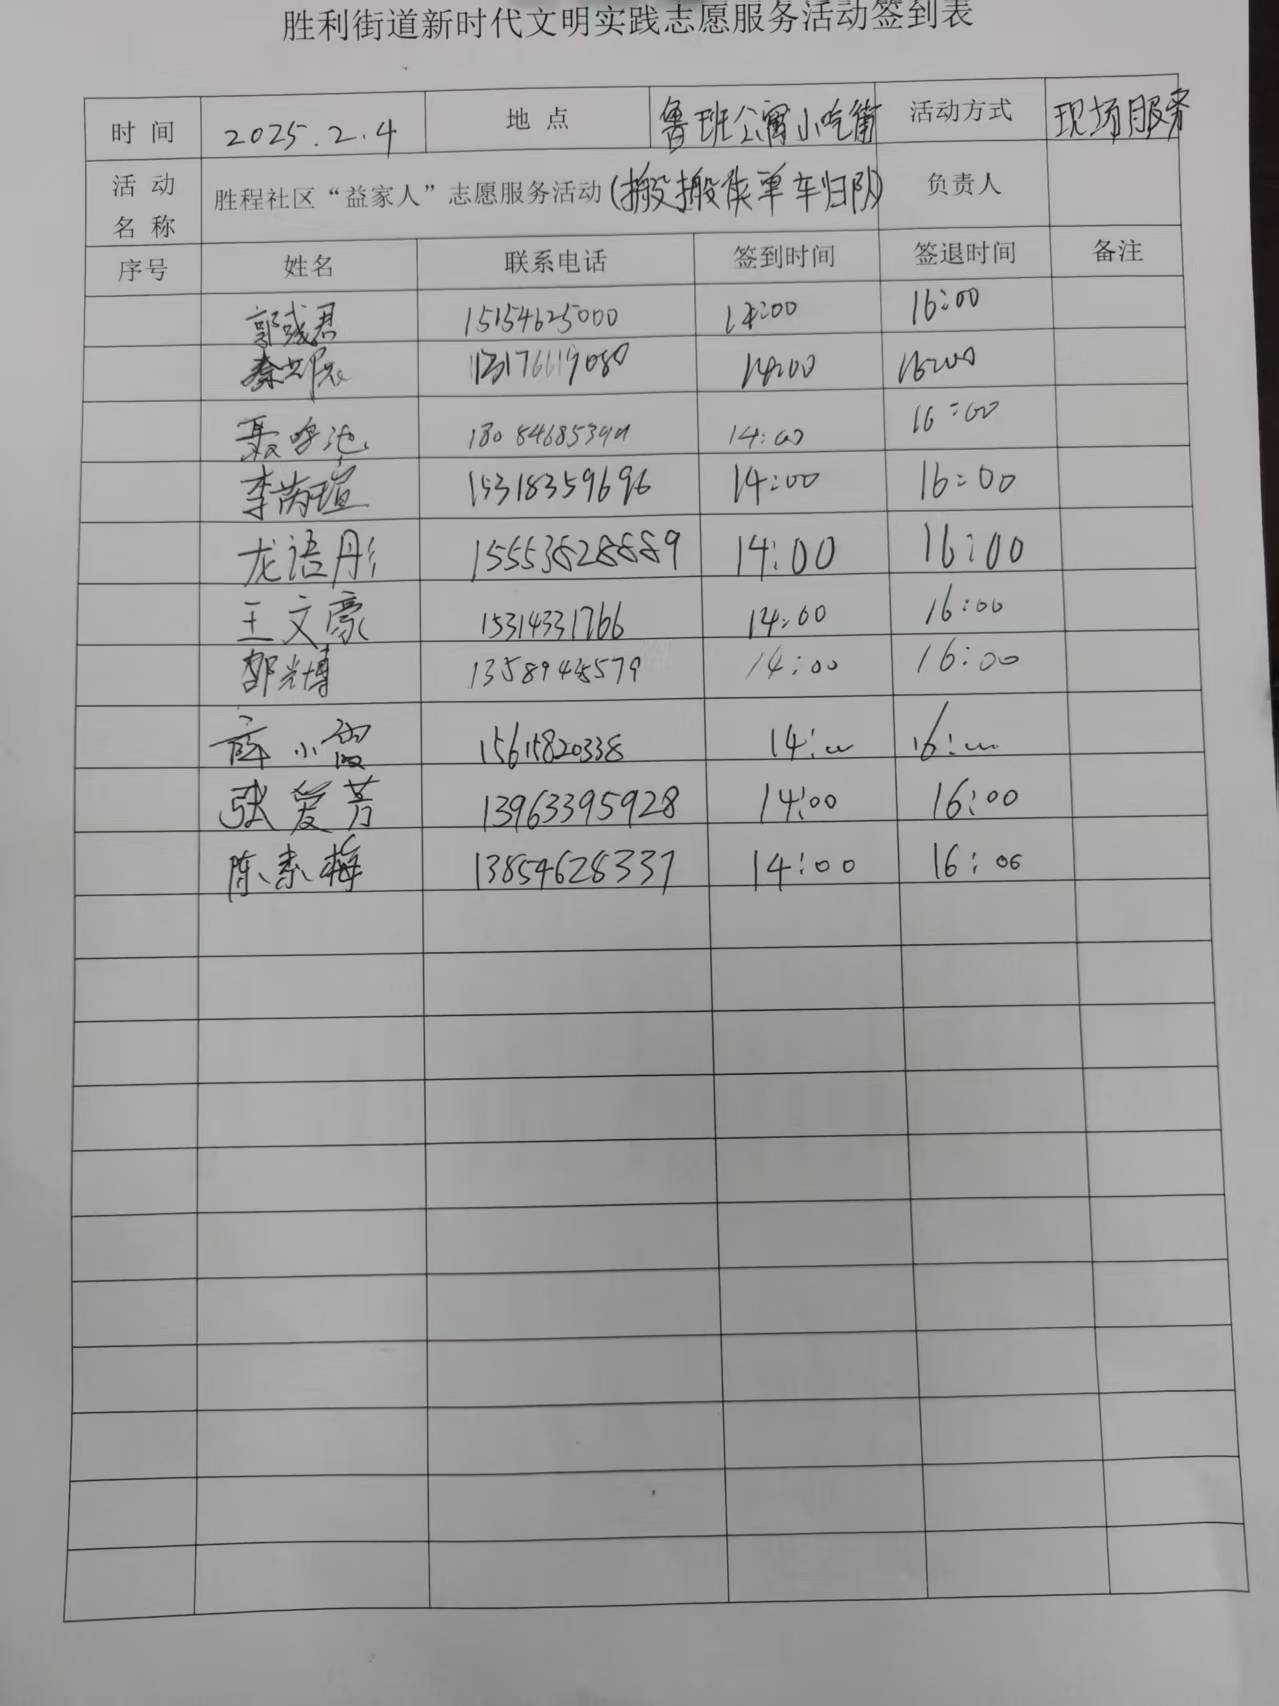 胜利街道新时代文明实践志愿服务活动签到表
时间 2025.2.4 地点 鲁班公寓小吃街 活动方式 现场服务
活动名称 胜程社区“益家人”志愿服务活动(搬搬侠单车归队) 负责人
序号 姓名 联系电话 签到时间 签退时间 备注
郭 君 15154625000 14:00 16:00
秦 13176619080 14:00 16:00
聂 14:00 16:00
李芮瑄 15318359696 14:00 16:00
龙语彤 15553828889 14:00 16:00
王文豪 15314331766 14:00 16:00
邵光博 14:00 16:00
薛小霞 15615820338 14:00 16:00
张爱芳 13963395928 14:00 16:00
陈素梅 13854628337 14:00 16:00